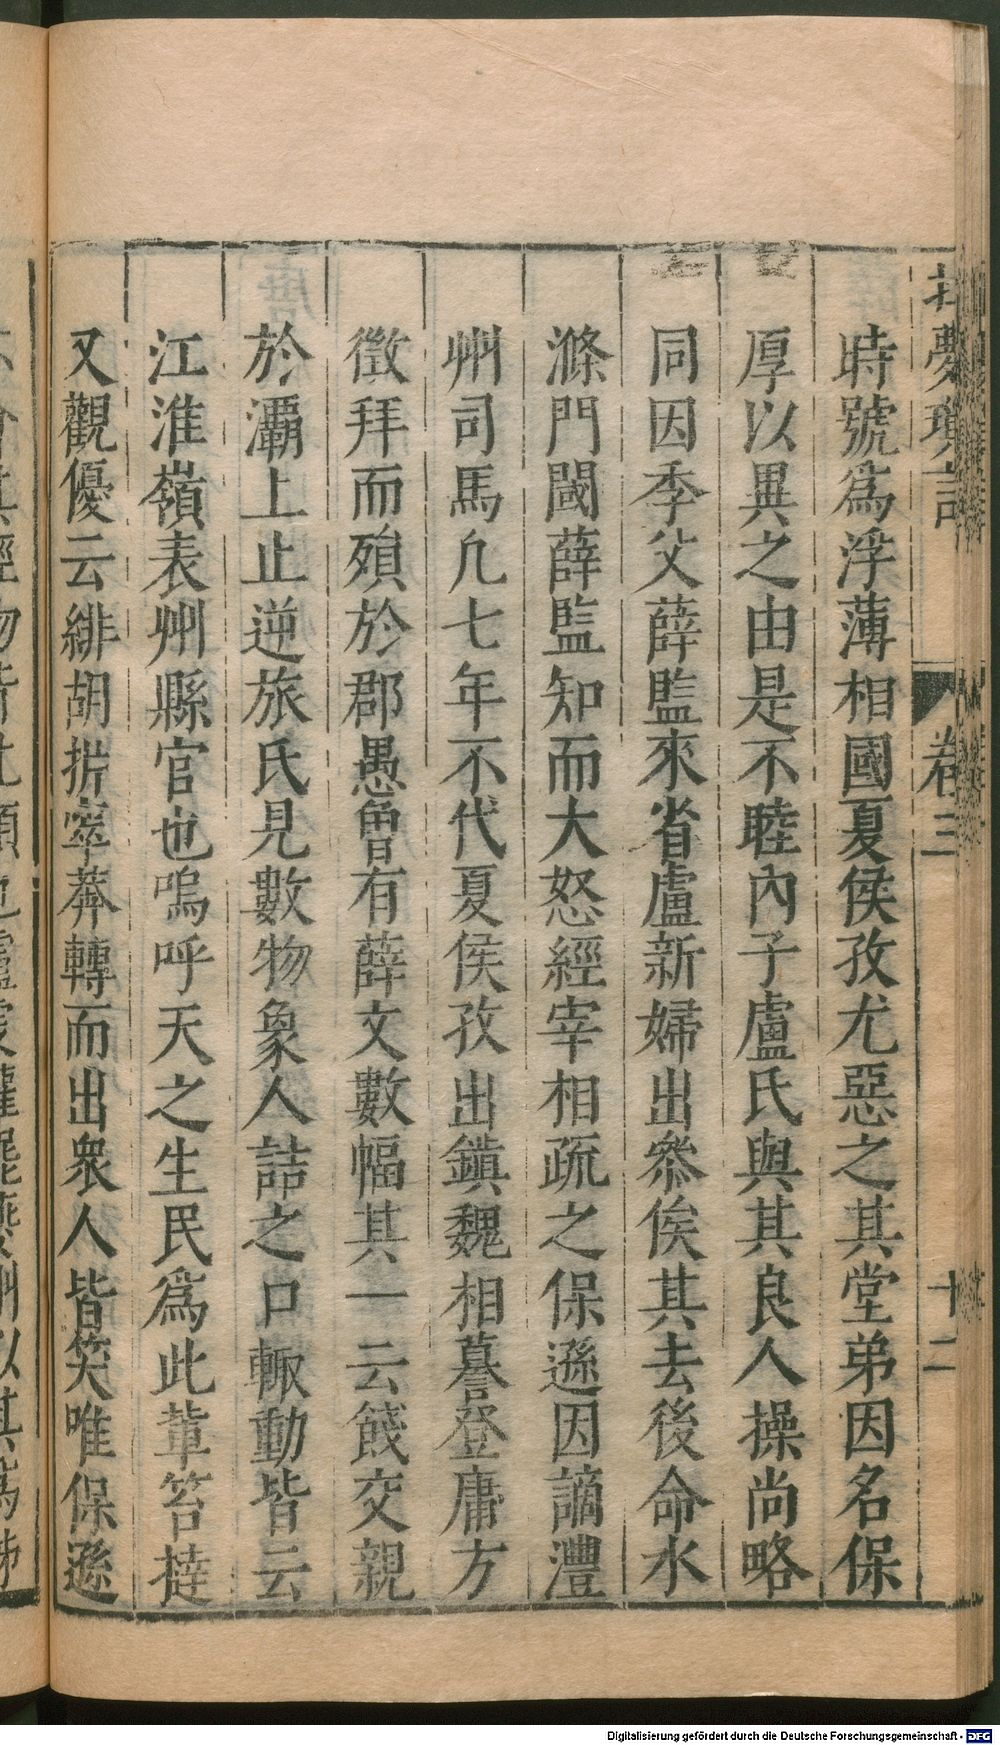 夢瑣言
卷三
十二
時號為浮薄相國夏侯孜尤惡之其堂弟因名保
厚以異之由是不睦內子盧氏與其良人操尚略
同因季父薛監來省盧新婦出叅俟其去後命水
滌門閾薛監知而大怒經宰相疏之保遜因謫灃
州司馬凢七年不代夏侯孜出鎮魏相謩登庸方
徵拜而殞於郡愚曾有薛文數幅其一云餞交親
於灞上止逆旅氏見數物象人詰之口輙動皆云
江淮嶺表州縣官也嗚呼天之生民為此輩笞撻
又觀優云緋胡折窣莽轉而出衆人皆笑唯保遜
Digitalisierung gefördert durch die Deutsche Forschungsgemeinschaft - DFG